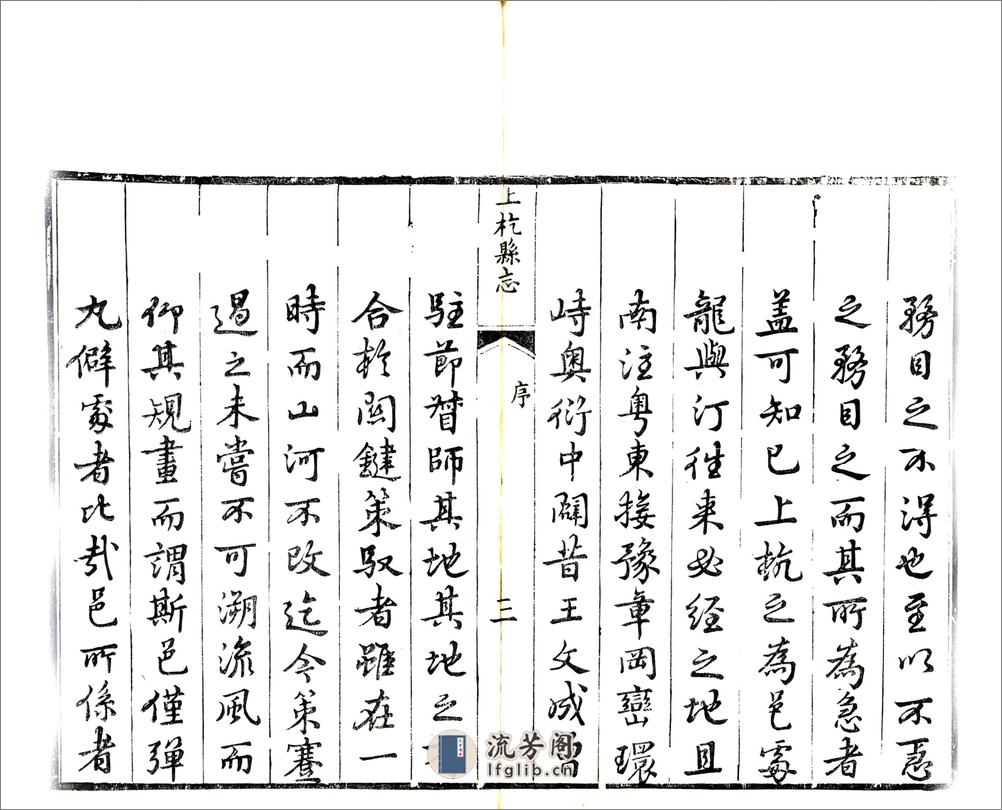 務目之不得也至以不急
之務目之而其所為急者
蓋可知已上杭之為邑處
龍與汀往來必經之地且
南注粵東接豫章岡巒環
峙奧衍中闢昔王文成曾
上杭縣志
序
三
駐節督師其地其地之
合於關鍵策馭者雖在一
時而山河不改迄今策蹇
過之未嘗不可溯流風而
仰其規畫而謂斯邑僅彈
丸僻處者比哉邑所係者
流芳阁
lfglib.cn